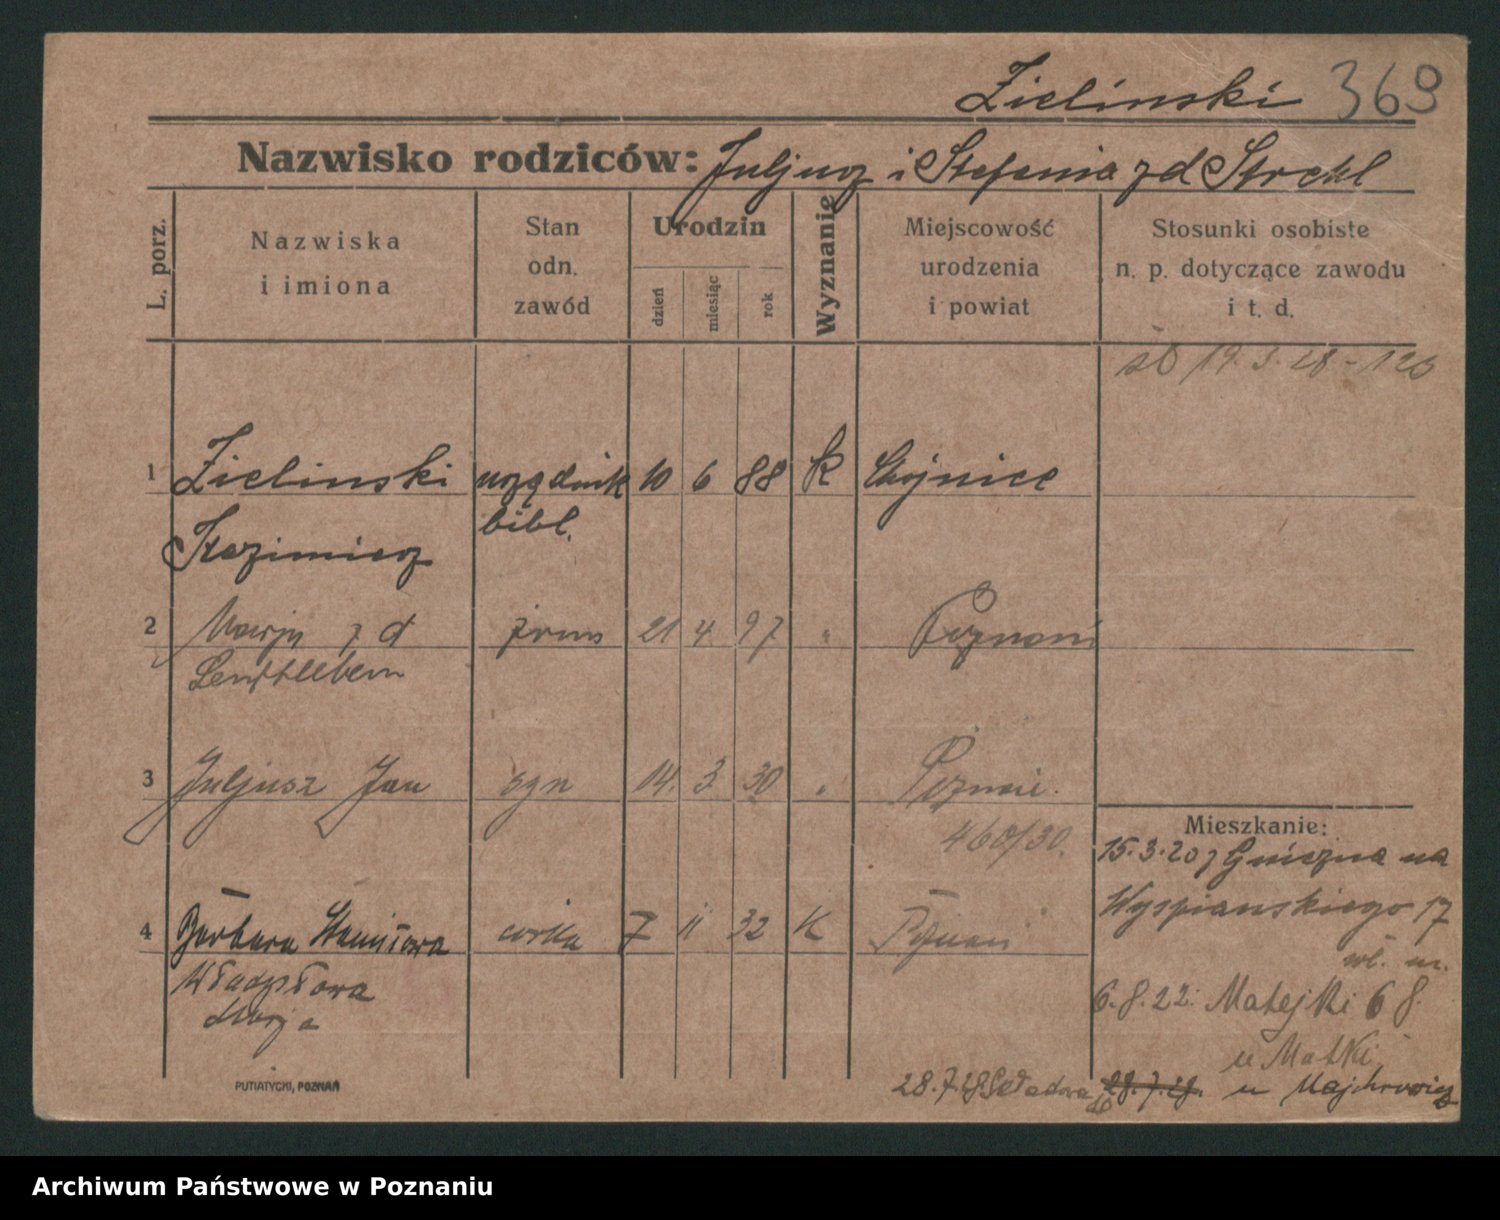 Zieliński 369
Nazwisko rodziców: Juljusz i Stefania z d Strehl
L. porz.
Nazwiska
i imiona
Stan
odn.
zawód
Urodzin
dzień
miesiąc
rok
Wyznanie
Miejscowość
urodzenia
i powiat
Stosunki osobiste
n. p. dotyczące zawodu
i t. d.
19.3.28 -
1 Zielinski urzędnik 10 6 88 k Chojnice
bibl.
Kazimierz
2 Marja z d żona 21 4 97 " Poznań
3 Juljusz Jan syn 14. 3 30 " Poznań.
460/30.
4 Barbara Stanisława córka 7 11 32 K Poznań
Władysława
Marja
Mieszkanie:
15.3.20 z Gniezna na
Wyspiańskiego 17
6.8.22. Matejki 68.
u Matki
28.7.28 Składowa 28.7.28. u Majchrowicz
PUTIATYCKI, POZNAŃ
Archiwum Państwowe w Poznaniu